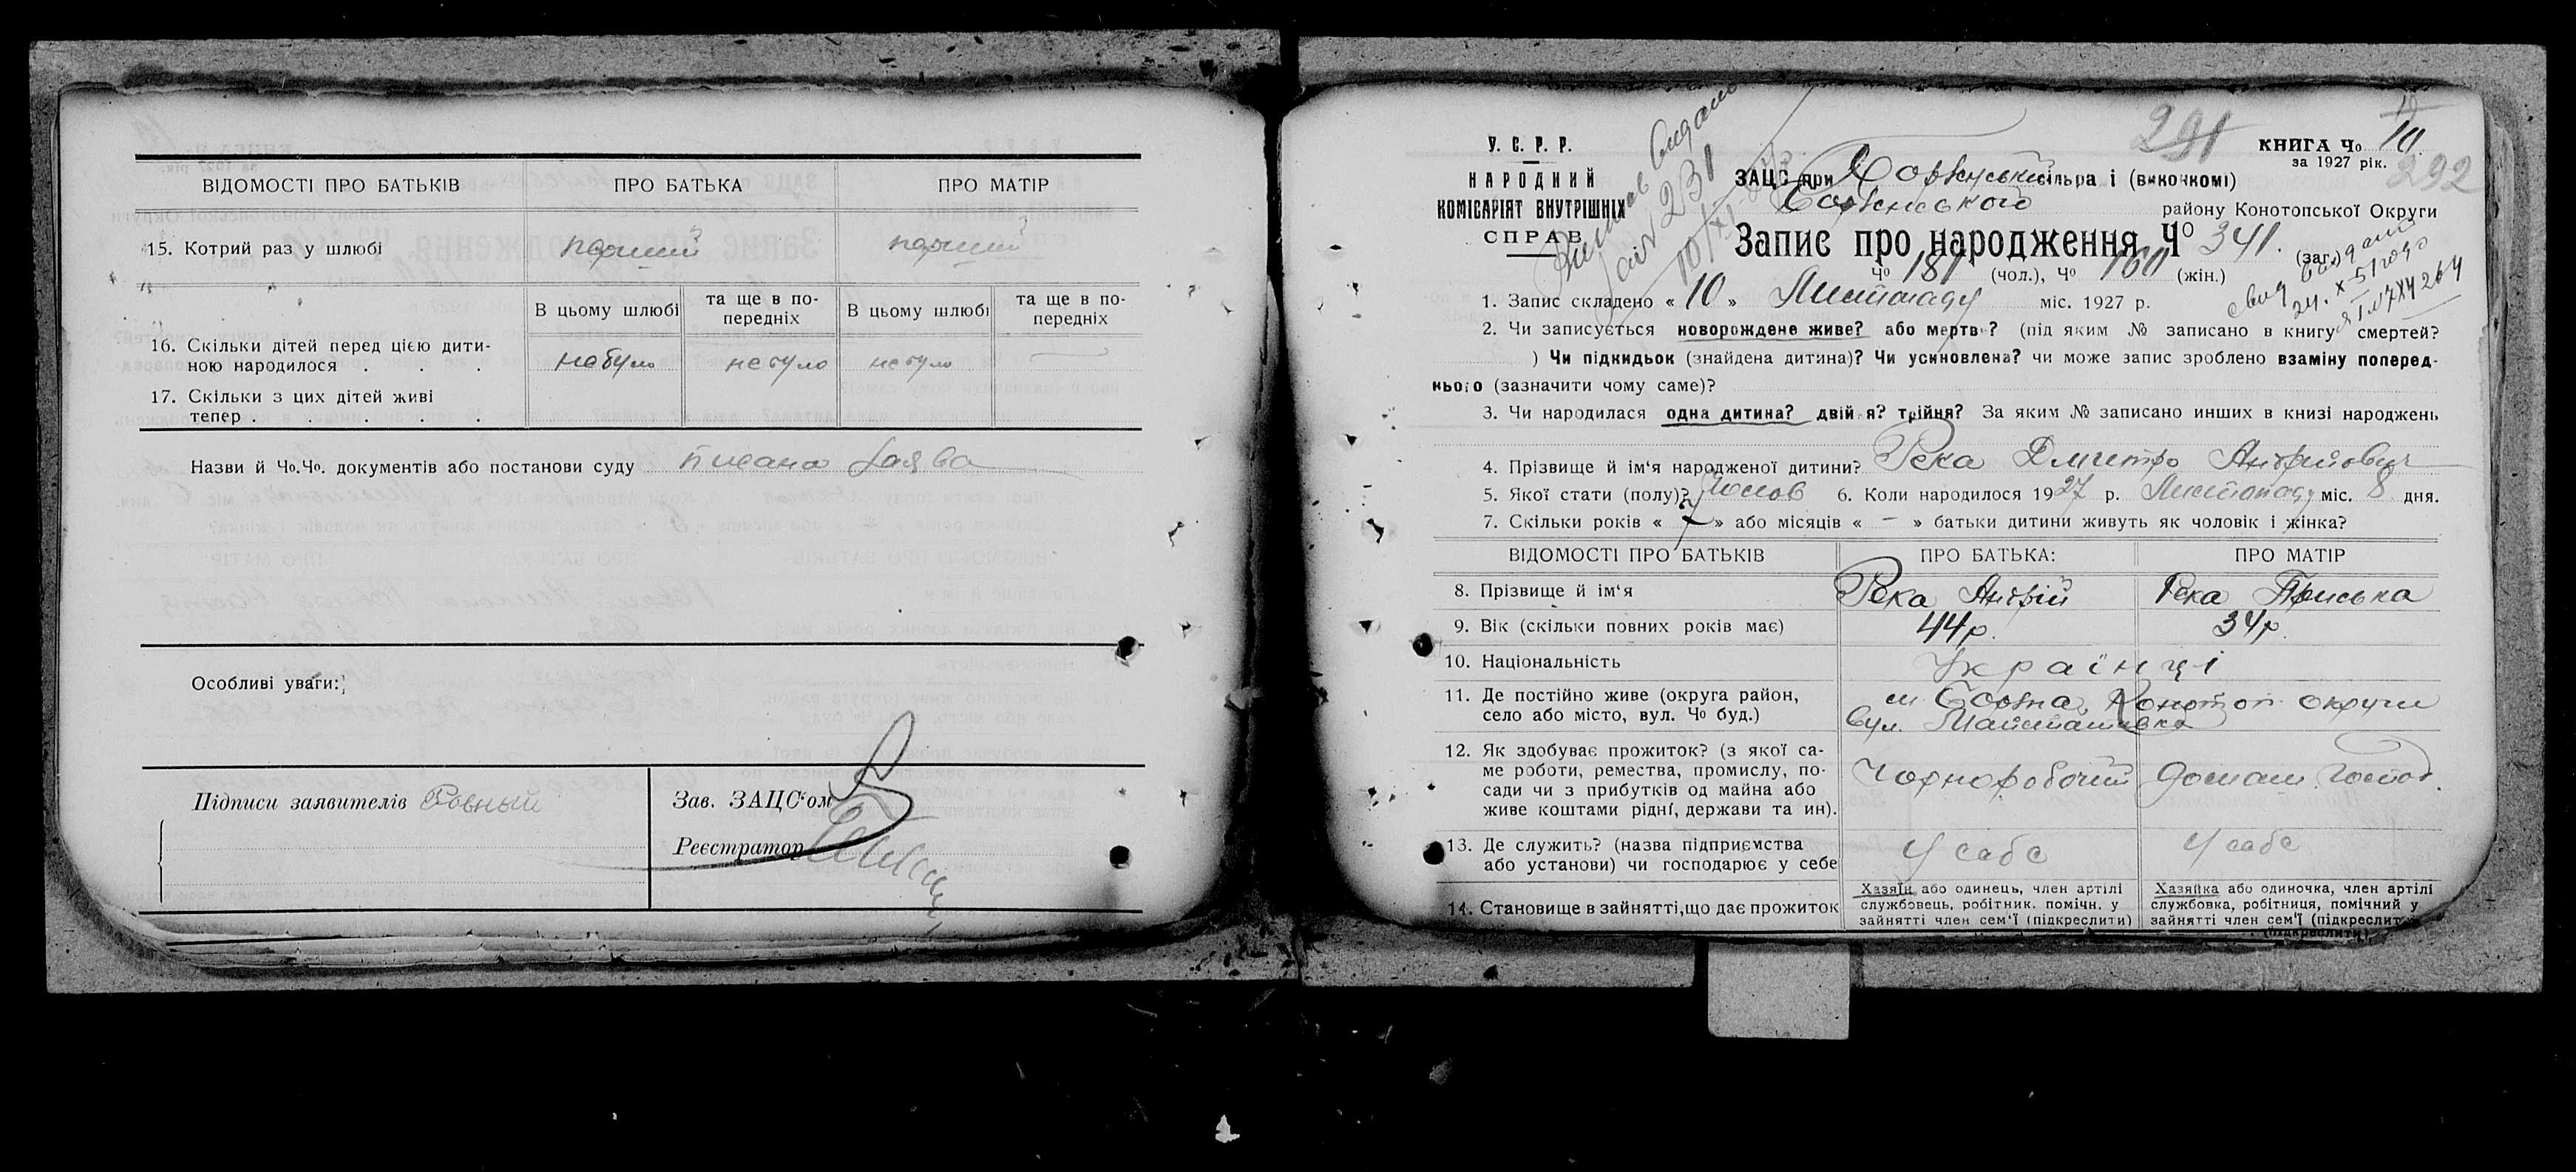 ВІДОМОСТІ ПРО БАТЬКІВ ПРО БАТЬКА ПРО МАТІР
15. Котрий раз у шлюбі перший перший
В цьому шлюбі та ще в по- В цьому шлюбі та ще в по-
передніх передніх
16. Скільки дітей перед цією дити-
ною народилося . . . небуло небуло небуло
17. Скільки з цих дітей живі
тепер . . . . .
Назви й Чо.Чо. документів або постанови суду писана заява
Особливі уваги:
Підписи заявителів Ровный
Зав. ЗАЦС'ом
Реєстратор
У. С. Р. Р.
НАРОДНИЙ
КОМІСАРІЯТ ВНУТРІШНІХ
СПРАВ
231
10/XI-
291
КНИГА Чо 10
за 1927 рік.
292
ЗАЦС при сільра і (виконкомі)
району Конотопської Округи
Запис про народження Чо 341. (заг.)
Чо 181 (чол.), Чо 160 (жін.)
1. Запис складено « 10 » Листопаду міс. 1927 р.
2. Чи записується новорождене живе? або мертве? (під яким № записано в книгу смертей?
) Чи підкидьок (знайдена дитина)? Чи усиновлена? чи може запис зроблено взаміну поперед-
нього (зазначити чому саме)?
3. Чи народилася одна дитина? двійня? трійня? За яким № записано инших в книзі народжень
4. Прізвище й ім'я народженої дитини? Река Дмитро Андрійович
5. Якої стати (полу)? 6. Коли народилося 1927 р. Листопаду міс. 8 дня.
7. Скільки років « 7 » або місяців « – » батьки дитини живуть як чоловік і жінка?
ВІДОМОСТІ ПРО БАТЬКІВ ПРО БАТЬКА: ПРО МАТІР
8. Прізвище й ім'я Река Андрій Река Приська
9. Вік (скільки повних років має) 44 р. 34 р.
10. Національність Українці
11. Де постійно живе (округа район, м Борзна Конотоп округи
село або місто, вул. Чо буд.) вул.
12. Як здобуває прожиток? (з якої са-
ме роботи, ремества, промислу, по- Чорноробочий домаш. господ.
сади чи з прибутків од майна або
живе коштами рідні, держави та ин).
13. Де служить? (назва підприємства У себе У себе
або установи) чи господарює у себе
14. Становище в зайнятті, що дає прожиток
Хазяїн або одинець, член артілі
службовець, робітник. помічн. у
зайнятті член сем'ї (підкреслити)
Хазяйка або одиночка, член артілі
службовка, робітниця, помічний у
зайнятті член сем'ї (підкреслити)
(підкреслити)